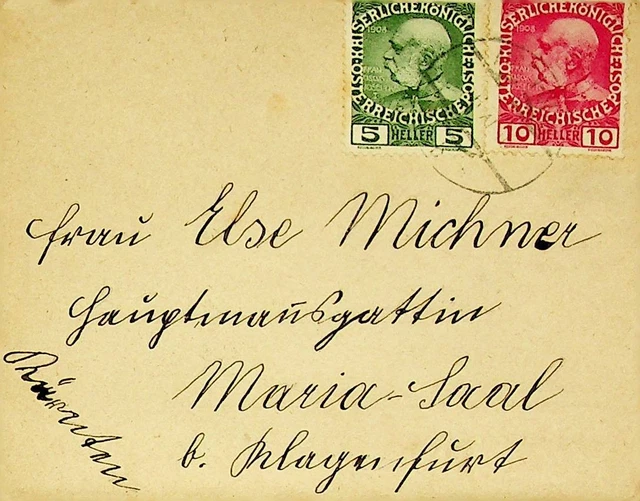 KAISERLICHE KÖNIGLICHE ÖSTERREICHISCHE POST
1908
FRANZ JOSEF I
5 HELLER 5
KAISERLICHE KÖNIGLICHE ÖSTERREICHISCHE POST
1908
10 HELLER 10
Frau Else Michner
Hauptmannsgattin
Maria-Saal
b. Klagenfurt
Kärnten